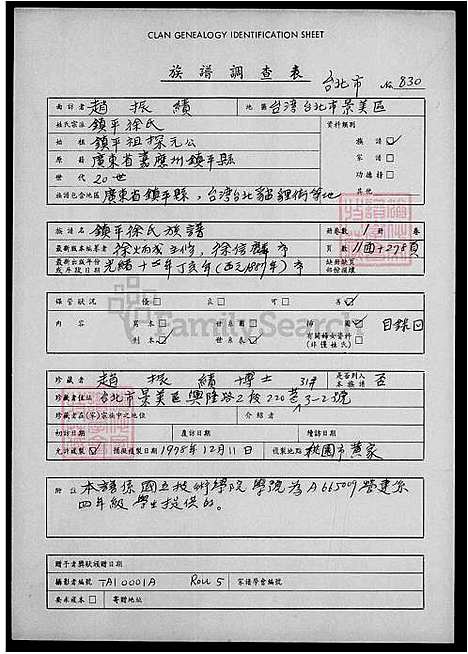 CLAN GENEALOGY IDENTIFICATION SHEET
族譜調查表 台北市 No. 830
面訪者 趙振績 地區 台灣台北市景美區
姓氏宗注 鎮平徐氏 資料類別
始祖 鎮平祖探元公 族譜
原籍 廣東省嘉應州鎮平縣 家譜
世代 20世 功德榜
族譜包含地區 廣東省鎮平縣，台灣台北貓貍街等地 其他
族譜名 鎮平徐氏族譜 冊卷數 1 冊 卷
最新版本編纂者 徐炳 主修，徐信 頁數 11面+278頁
最新出版年份或年段日期 光緒十三年丁亥年(西元1887年) 缺冊缺頁部份損壞
保管狀況 優 良 可 劣
內容 寫本 世系表 插圖 目錄
刊本 世系圖 有關婦女資料(非僅姓氏)
珍藏者 趙振績 博士 31歲 是否列入本族譜 否
珍藏者住址 台北市景美區興隆路2段220巷3-2號
珍藏者在(宗)家族中之地位 介紹者
初訪日期 復訪日期 續訪日期
允許複製 攝影複製日期 1978年12月11日 複製地點 桃園市黃家
附註 本譜係國立技術學院學號為A665009營建系
四年級學生提供的。
贈予者獎狀頒贈日期
攝影者編號 TA10001A Roll 5 家譜學會編號
要求複本 寄贈地址
FamilySearch